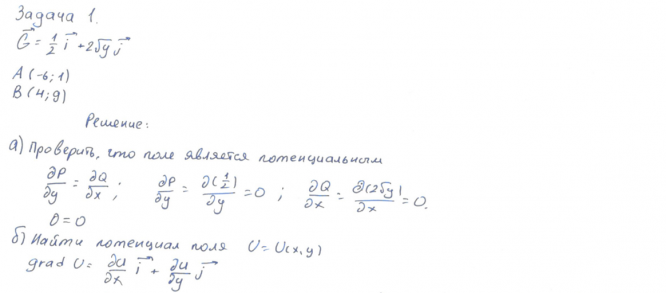 Задача 1.
G⃗ = 1/2 i⃗ + 2√y j⃗
A (-6; 1)
B (4; 9)
Решение:
а) Проверить, что поле является потенциальным
∂P/∂y = ∂Q/∂x ; ∂P/∂y = ∂(1/2)/∂y = 0 ; ∂Q/∂x = ∂(2√y)/∂x = 0.
0 = 0
б) Найти потенциал поля U = U(x, y)
grad U = ∂U/∂x i⃗ + ∂U/∂y j⃗